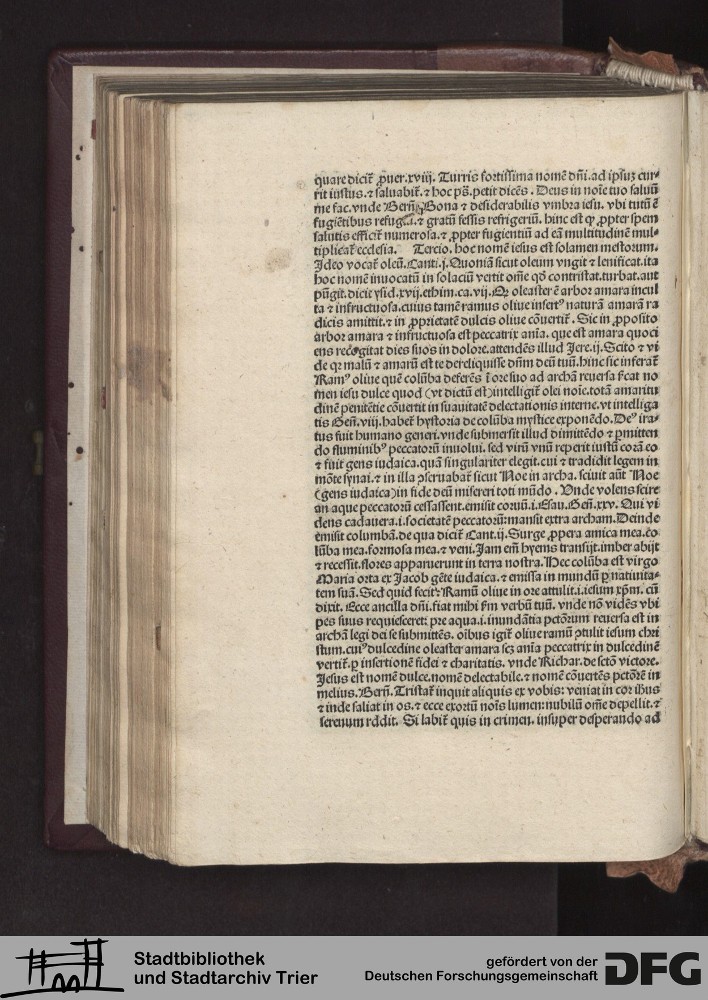 quare dicit᷑ ꝓuer.xviij. Turris fortissima nomē dn̄i.ad ipsuꝫ cur⸗
rit iustus.⁊ saluabit᷑.⁊ hoc ps̄.petit dicēs. Deus in noīe tuo saluū
me fac.vnde Bern̄. Bona ⁊ desiderabilis vmbra iesu. vbi tutū ē
fugiētibus ⁊ gratū fessis refrigeriū. hinc est ꝙ ꝓpter spem
salutis efficit᷑ numerosa.⁊ ꝓpter fugientiū ad eā multitudinē mul⸗
tiplicat᷑ ecclesia. Tercio. hoc nomē iesus est solamen mestorum.
Ideo vocat᷑ oleū. Canti.j. Quoniā sicut oleum vngit ⁊ lenificat.ita
hoc nomē inuocatū in solaciū vertit om̄e qd̄ contristat.turbat.aut
pūgit.dicit ysid.xvij.ethim.ca.vij. Ꝙ oleaster ē arbor amara incul
ta ⁊ infructuosa.cuius tamē ramus oliue insertꝰ naturā amarā ra
dicis amittit.⁊ in ꝓprietatē dulcis oliue cōuertit᷑. Sic in ꝓposito
arbor amara ⁊ infructuosa est peccatrix aīa. que est amara quoci
ens recogitat dies suos in dolore.attendēs illud Jere.ij. Scito ⁊ vi
de qꝛ malū ⁊ amarū est te dereliquisse dn̄m deū tuū.hinc sic inferat᷑
Ramꝰ oliue quē colūba deferēs ī ore suo ad archā reuersa sic̄at no
men iesu dulce quod (vt dictū est)intelligit᷑ olei noīe.totā amaritu
dinē penitētie cōuertit in suauitatē delectationis interne.vt intelliga
tis Gen̄.viij.habet᷑ hystoria de colūba mystice exponēdo. Deꝰ ira⸗
tus fuit humano generi.vnde submersit illud dimittēdo ⁊ ꝑmitten
do fluminibꝰ peccatorū inuolui. sed virū vnū reperit iustū corā eo
⁊ fuit gens iudaica.quā singulariter elegit.cui ⁊ tradidit legem in
mōte synai.⁊ in illa ꝯseruabat᷑ sicut Noe in archa. sciuit aūt Noe
(gens iudaica)in fide deū misereri toti mūdo. Unde volens scire
an aque peccatorū cessassent.emisit coruū.i.Esau.Gen̄.xxv. Qui vi
dens cadauera.i.societatē peccatorū:mansit extra archam. Deinde
emisit columbā.de qua dicit᷑ Cant.ij. Surge ꝓpera amica mea.co
lūba mea.formosa mea.⁊ veni. Jam em̄ hyems transijt.imber abijt
⁊ recessit.flores apparuerunt in terra nostra. Hec colūba est virgo
Maria orta ex Jacob gēte iudaica.⁊ emissa in mundū ꝑ natiuita⸗
tem suā. Sed quid fecit: Ramū oliue in ore attulit.i.iesum xp̄m. cū
dixit. Ecce ancilla dn̄i.fiat mihi ẜm verbū tuū. vnde nō vidēs vbi
pes suus requiesceret: pre aqua.i.inundātia pctōrum reuersa est in
archā legi dei se submittēs. oībus igit᷑ oliue ramū ꝓtulit iesum chri
stum.cuiꝰ dulcedine oleaster amara scꝫ aīa peccatrix in dulcedinē
vertit᷑.ꝑ insertionē fidei ⁊ charitatis. vnde Richar.de sctō victore.
Jesus est nomē dulce.nomē delectabile.⁊ nomē cōuertēs pctōrē in
melius. Bern̄. Tristat᷑ inquit aliquis ex vobis: veniat in cor ih̄us
⁊ inde saliat in os.⁊ ecce exortū noīs lumen:nubilū om̄e depellit.⁊
serenum rddit. Si labit᷑ quis in crimen. insuper desperando ad
Stadtbibliothek
und Stadtarchiv Trier
gefördert von der
Deutschen Forschungsgemeinschaft
DFG